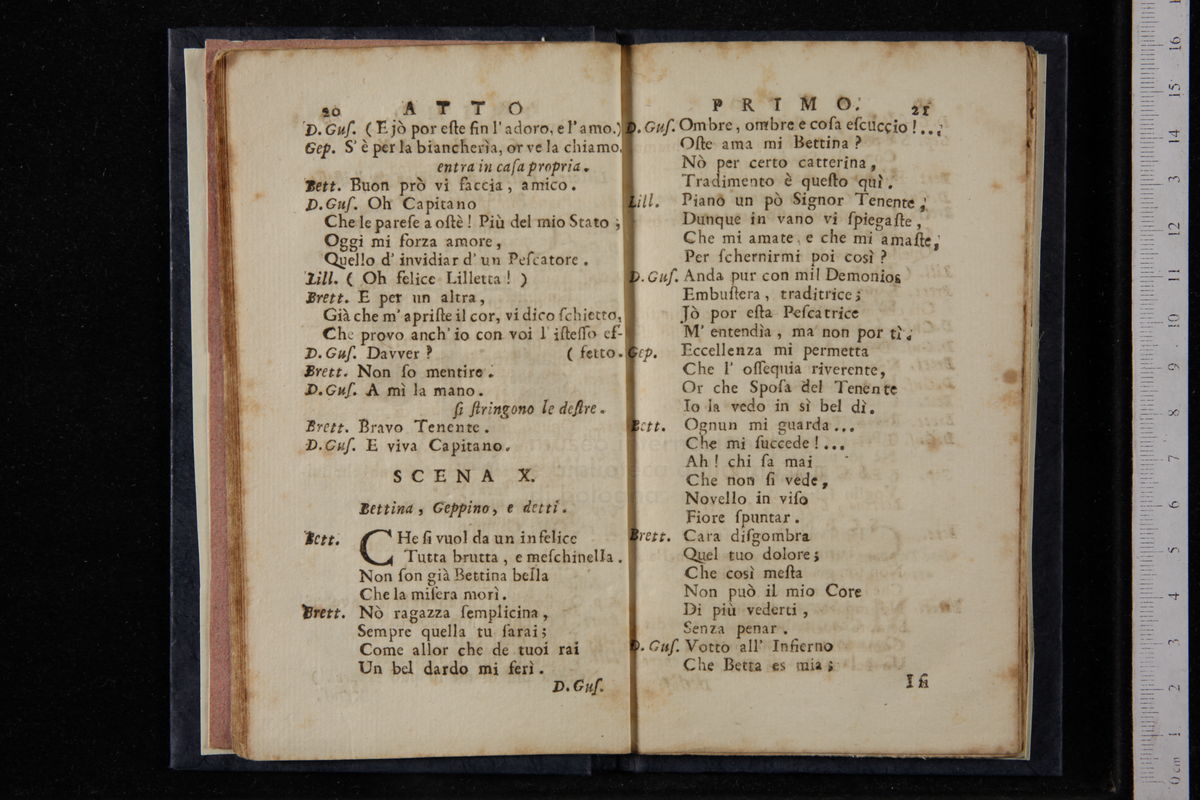 20 ATTO
D. Guſ. ( E jò por eſte ſin l' adoro, e l' amo.)
Gep. S' è per la biancherìa, or ve la chiamo.
entra in caſa propria.
Bett. Buon prò vi faccia, amico.
D. Guſ. Oh Capitano
Che le pareſe a oſtè! Più del mio Stato;
Oggi mi forza amore,
Quello d' invidiar d' un Peſcatore.
Lill. ( Oh felice Lilletta! )
Brett. E per un altra,
Già che m' apriſte il cor, vi dico ſchietto,
Che provo anch' io con voi l' iſteſſo ef-
D. Guſ. Davver? ( fetto.
Brett. Non ſo mentire.
D. Guſ. A mì la mano.
ſi ſtringono le deſtre.
Brett. Bravo Tenente.
D. Guſ. E viva Capitano.
SCENA X.
Bettina, Geppino, e detti.
Bett. CHe ſi vuol da un infelice
Tutta brutta, e meſchinella.
Non ſon già Bettina bella
Che la miſera morì.
Brett. Nò ragazza ſemplicina,
Sempre quella tu ſarai;
Come allor che de tuoi rai
Un bel dardo mi ferì.
D. Guſ.
PRIMO. 21
D. Guſ. Ombre, ombre e coſa eſcuccio!...
Oſte ama mi Bettina?
Nò per certo catterina,
Tradimento è queſto quì.
Lill. Piano un pò Signor Tenente,
Dunque in vano vi ſpiegaſte,
Che mi amate, e che mi amaſte,
Per ſchernirmi poi così?
D. Guſ. Anda pur con mil Demonios
Embuſtera, traditrice;
Jò por eſta Peſcatrice
M' entendìa, ma non por tì.
Gep. Eccellenza mi permetta
Che l' oſſequia riverente,
Or che Spoſa del Tenente
Io la vedo in sì bel dì.
Bett. Ognun mi guarda...
Che mi ſuccede!...
Ah! chi ſa mai
Che non ſi vede,
Novello in viſo
Fiore ſpuntar.
Brett. Cara diſgombra
Quel tuo dolore;
Che così meſta
Non può il mio Core
Di più vederti,
Senza penar.
D. Guſ. Votto all' Infierno
Che Betta es mia;